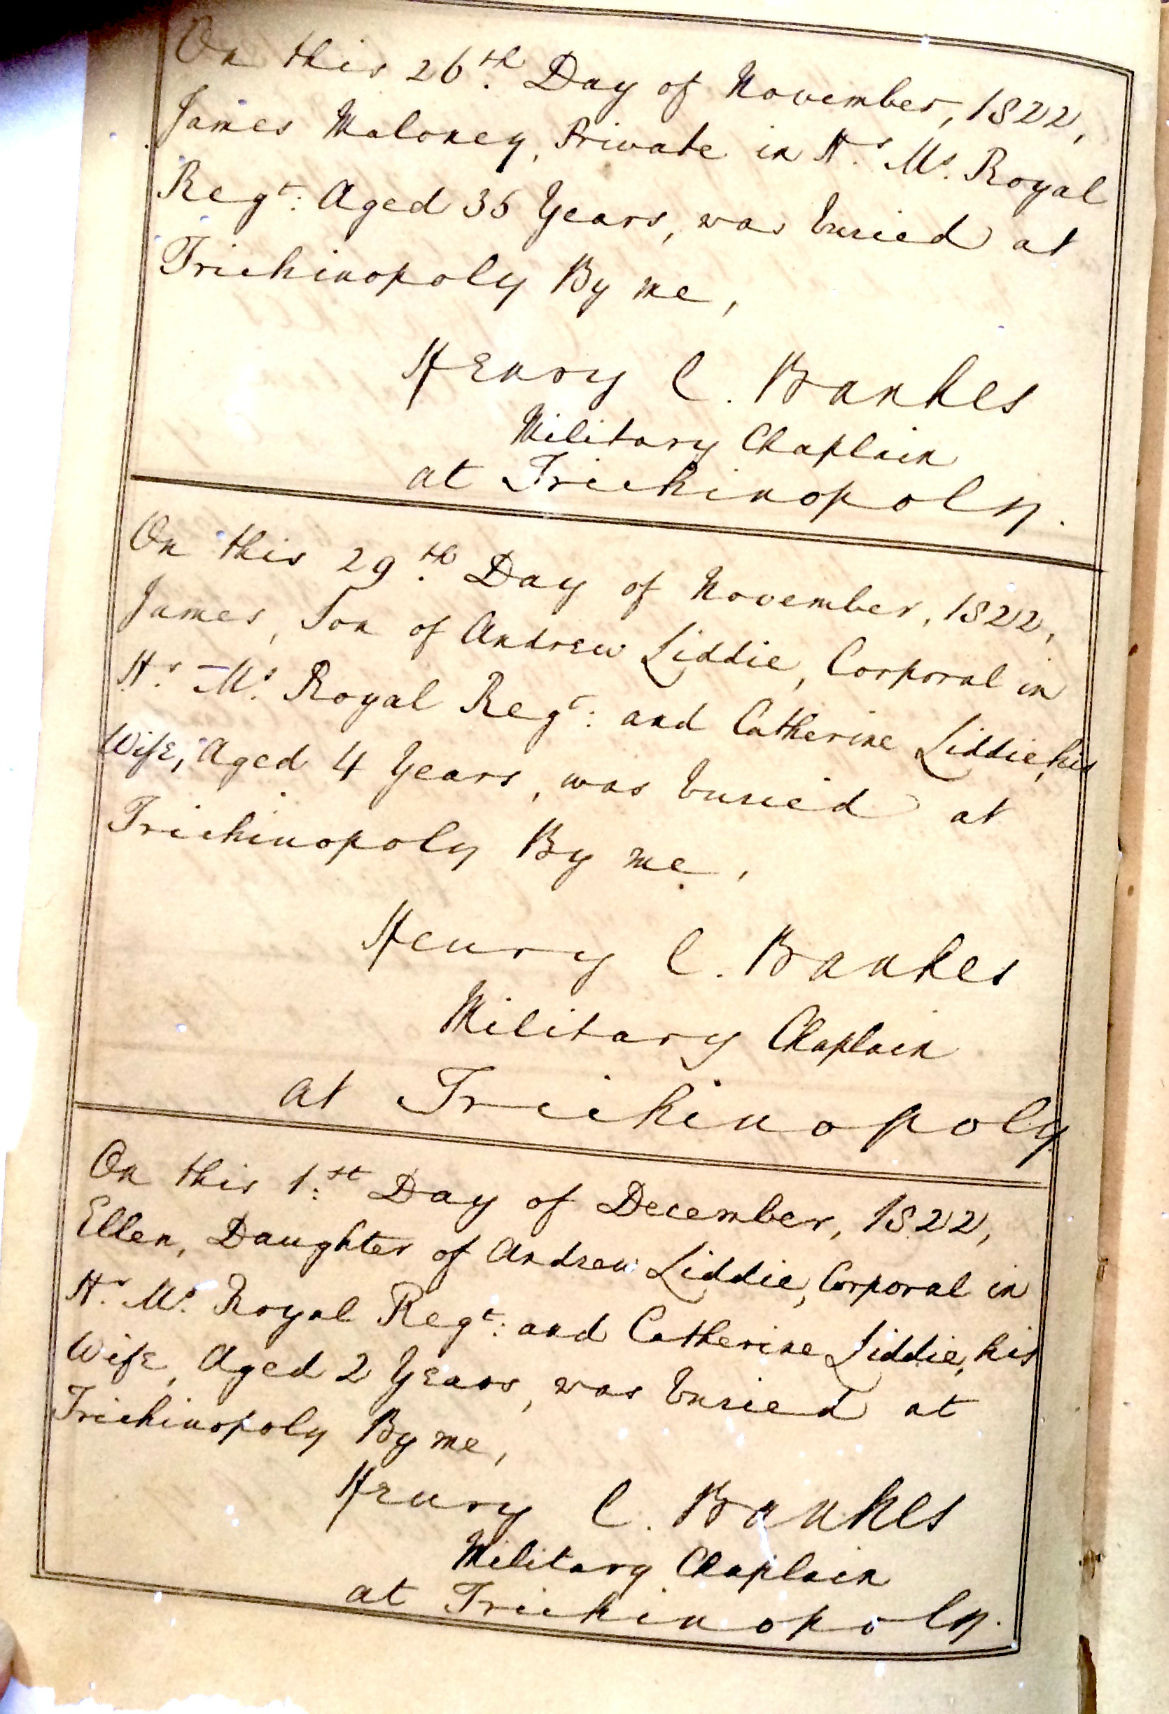 On this 26th. Day of November, 1822,
James Maloney, Private in Hs. Ms. Royal
Regt: Aged 35 Years, was buried at
Trichinopoly By me,
Henry C. Bankes
Military Chaplain
at Trichinopoly.
On this 29th. Day of November, 1822,
James, Son of Andrew Liddie, Corporal in
Hs. Ms. Royal Regt: and Catherine Liddie, his
Wife, Aged 4 Years, was buried at
Trichinopoly By me,
Henry C. Bankes
Military Chaplain
at Trichinopoly.
On this 1st: Day of December, 1822,
Ellen, Daughter of Andrew Liddie, Corporal in
Hs. Ms. Royal Regt: and Catherine Liddie, his
Wife, Aged 2 Years, was buried at
Trichinopoly By me,
Henry C. Bankes
Military Chaplain
at Trichinopoly.